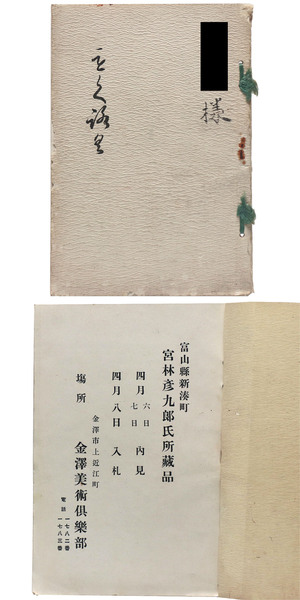 様
もくろく
富山縣新湊町
宮林彦九郎氏所藏品
四月 六日 七日 內見
四月八日 入札
場所
金澤市上近江町
金澤美術俱樂部
電話 一七八二番 一七八三番